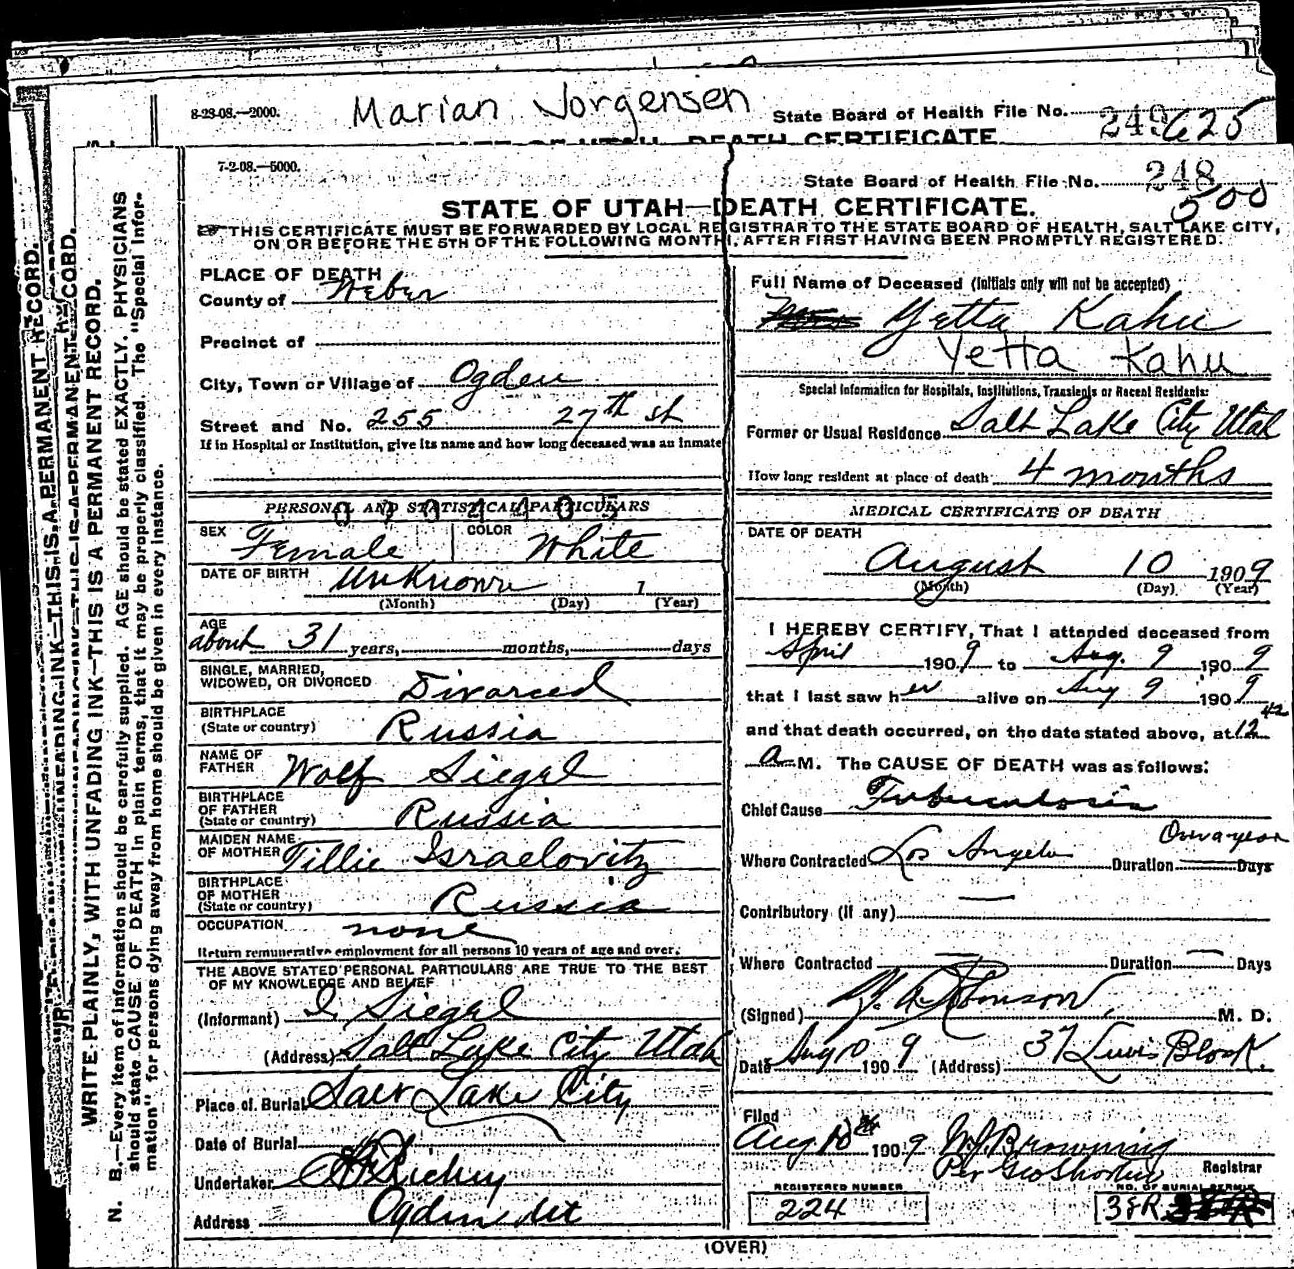 8-28-08.—2000.
Marian Jorgensen
State Board of Health File No.
249 625
STATE OF UTAH—DEATH CERTIFICATE.
7-2-08.—5000.
State Board of Health File No. 248
500
STATE OF UTAH—DEATH CERTIFICATE.
THIS CERTIFICATE MUST BE FORWARDED BY LOCAL REGISTRAR TO THE STATE BOARD OF HEALTH, SALT LAKE CITY,
ON OR BEFORE THE 5TH OF THE FOLLOWING MONTH, AFTER FIRST HAVING BEEN PROMPTLY REGISTERED.
WRITE PLAINLY, WITH UNFADING INK—THIS IS A PERMANENT RECORD.
N. B.—Every item of information should be carefully supplied. AGE should be stated EXACTLY. PHYSICIANS
should state CAUSE OF DEATH in plain terms, that it may be properly classified. The "Special Infor-
mation" for persons dying away from home should be given in every instance.
PLACE OF DEATH
County of Weber
Precinct of
City, Town or Village of Ogden
Street and No. 255 27th st
If in Hospital or Institution, give its name and how long deceased was an inmate
PERSONAL AND STATISTICAL PARTICULARS
SEX Female COLOR White
DATE OF BIRTH Unknown 1
(Month) (Day) (Year)
AGE
about 31 years, months, days
SINGLE, MARRIED,
WIDOWED, OR DIVORCED Divorced
BIRTHPLACE
(State or country) Russia
NAME OF
FATHER Wolf Siegel
BIRTHPLACE
OF FATHER
(State or country) Russia
MAIDEN NAME
OF MOTHER Tillie Israelovitz
BIRTHPLACE
OF MOTHER
(State or country) Russia
OCCUPATION none
Return remunerative employment for all persons 10 years of age and over.
THE ABOVE STATED PERSONAL PARTICULARS ARE TRUE TO THE BEST
OF MY KNOWLEDGE AND BELIEF
(Informant) I Siegel
(Address) Salt Lake City Utah
Place of Burial Salt Lake City
Date of Burial
Undertaker Richey
Address Ogden
Full Name of Deceased (Initials only will not be accepted)
Yetta Kahn
Yetta Kahu
Special Information for Hospitals, Institutions, Transients or Recent Residents:
Former or Usual Residence Salt Lake City Utah
How long resident at place of death 4 months
MEDICAL CERTIFICATE OF DEATH
DATE OF DEATH
August 10 1909
(Month) (Day) (Year)
I HEREBY CERTIFY, That I attended deceased from
April 1909 to Aug. 9 1909
that I last saw her alive on Aug 9 1909
and that death occurred, on the date stated above, at 12 42
a M. The CAUSE OF DEATH was as follows:
Chief Cause Tuberculosis
Over a year
Where Contracted Los Angeles Duration Days
Contributory (if any)
Where Contracted Duration Days
(Signed) M. D.
Date Aug 10 1909 (Address) 37 Lewis Block.
Filed
Aug 10th 1909 M J Browning
Per Geo Shorten Registrar
REGISTERED NUMBER
224
NO. OF BURIAL PERMIT
38R
(OVER)